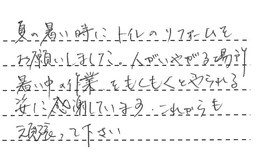 夏の暑い時に、トイレのリフォームで
お願いしました。人がいやがる場所
暑い中の作業をもくもくとやられる
姿に感謝しています。これからも
頑張って下さい